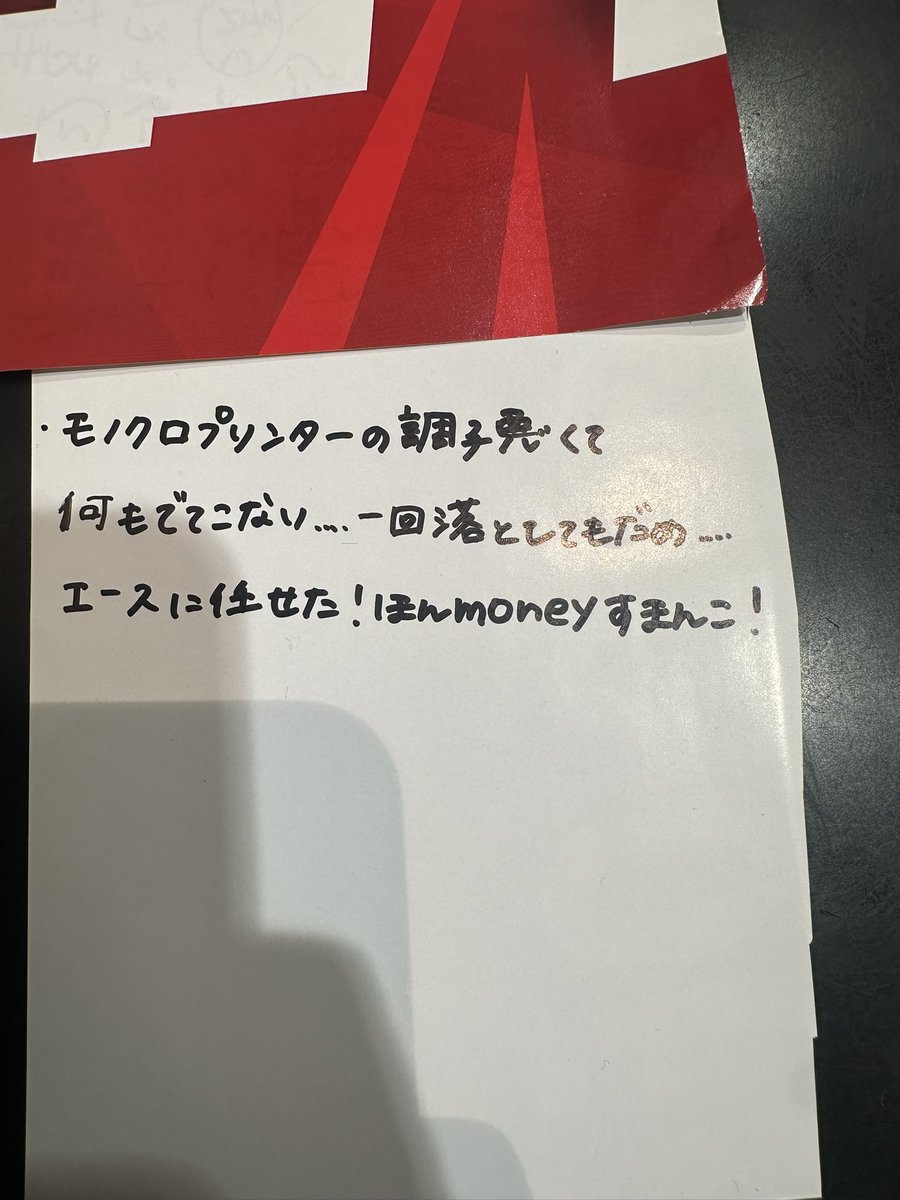 ・モノクロプリンターの調子悪くて
何もでてこない....一回落としてもだめ....
エースに任せた！ほんmoneyすまんこ！